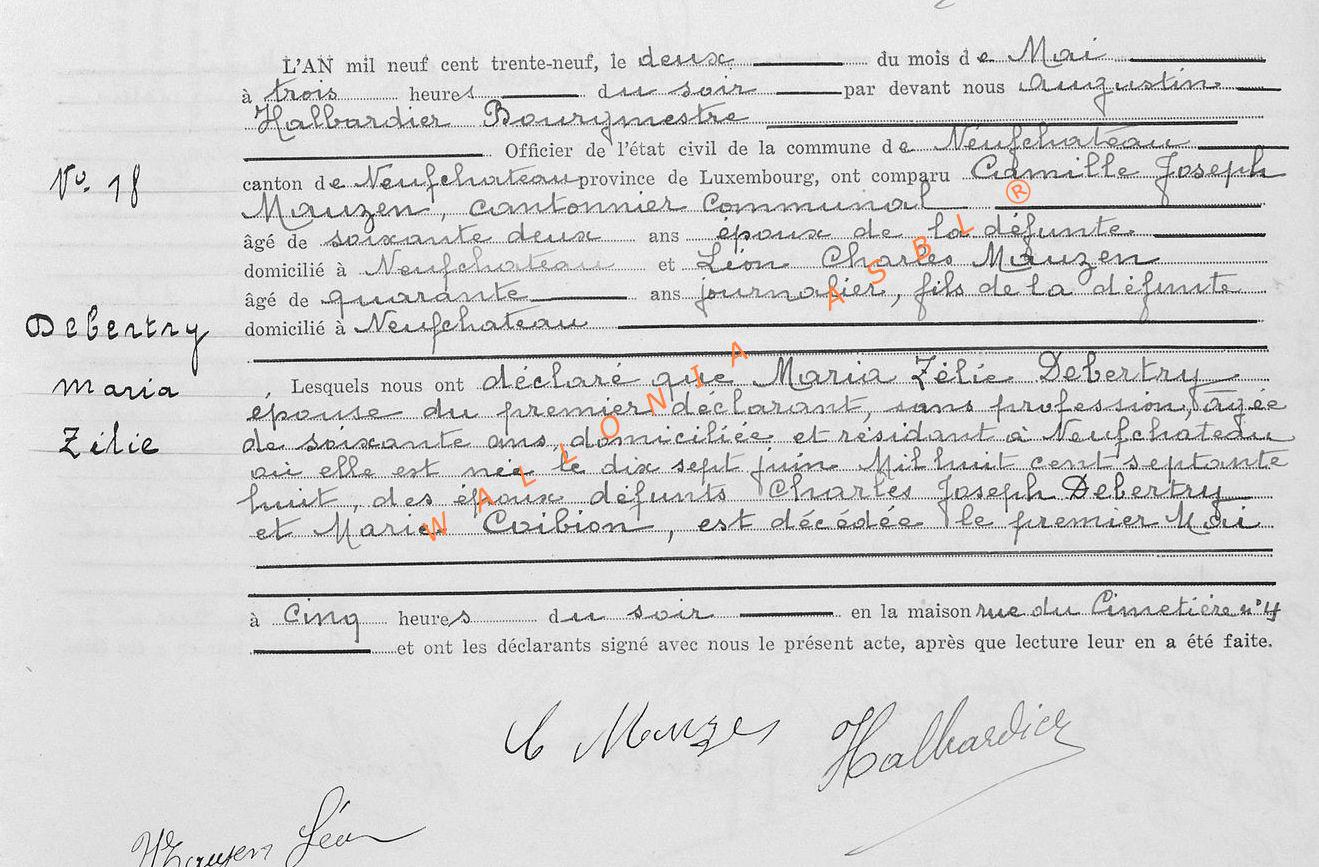 L'AN mil neuf cent trente-neuf, le deux du mois de Mai
à trois heures du soir par devant nous Augustin
Halbardier Bourgmestre
Officier de l'état civil de la commune de Neufchateau
N° 18
canton de Neufchateau province de Luxembourg, ont comparu Camille Joseph
Mauzen, cantonnier communal
âgé de soixante deux ans époux de la défunte.
domicilié à Neufchateau et Léon Charles Mauzen
âgé de quarante ans journalier, fils de la défunte
Debertry
domicilié à Neufchateau
Maria
Lesquels nous ont déclaré que Maria Zélie Debertry
épouse du premier déclarant, sans profession, agée
Zélie
de soixante ans, domiciliée et résidant à Neufchateau
où elle est née le dix sept juin Mil huit cent septante
huit, des époux défunts Charles Joseph Debertry
et Marie Coibion, est décédée le premier Mai
à cinq heures du soir en la maison rue du Cimetière n° 4
et ont les déclarants signé avec nous le présent acte, après que lecture leur en a été faite.
WALLONIA ASBL ®
C Mauzen Halbardier
Mauzen Léon